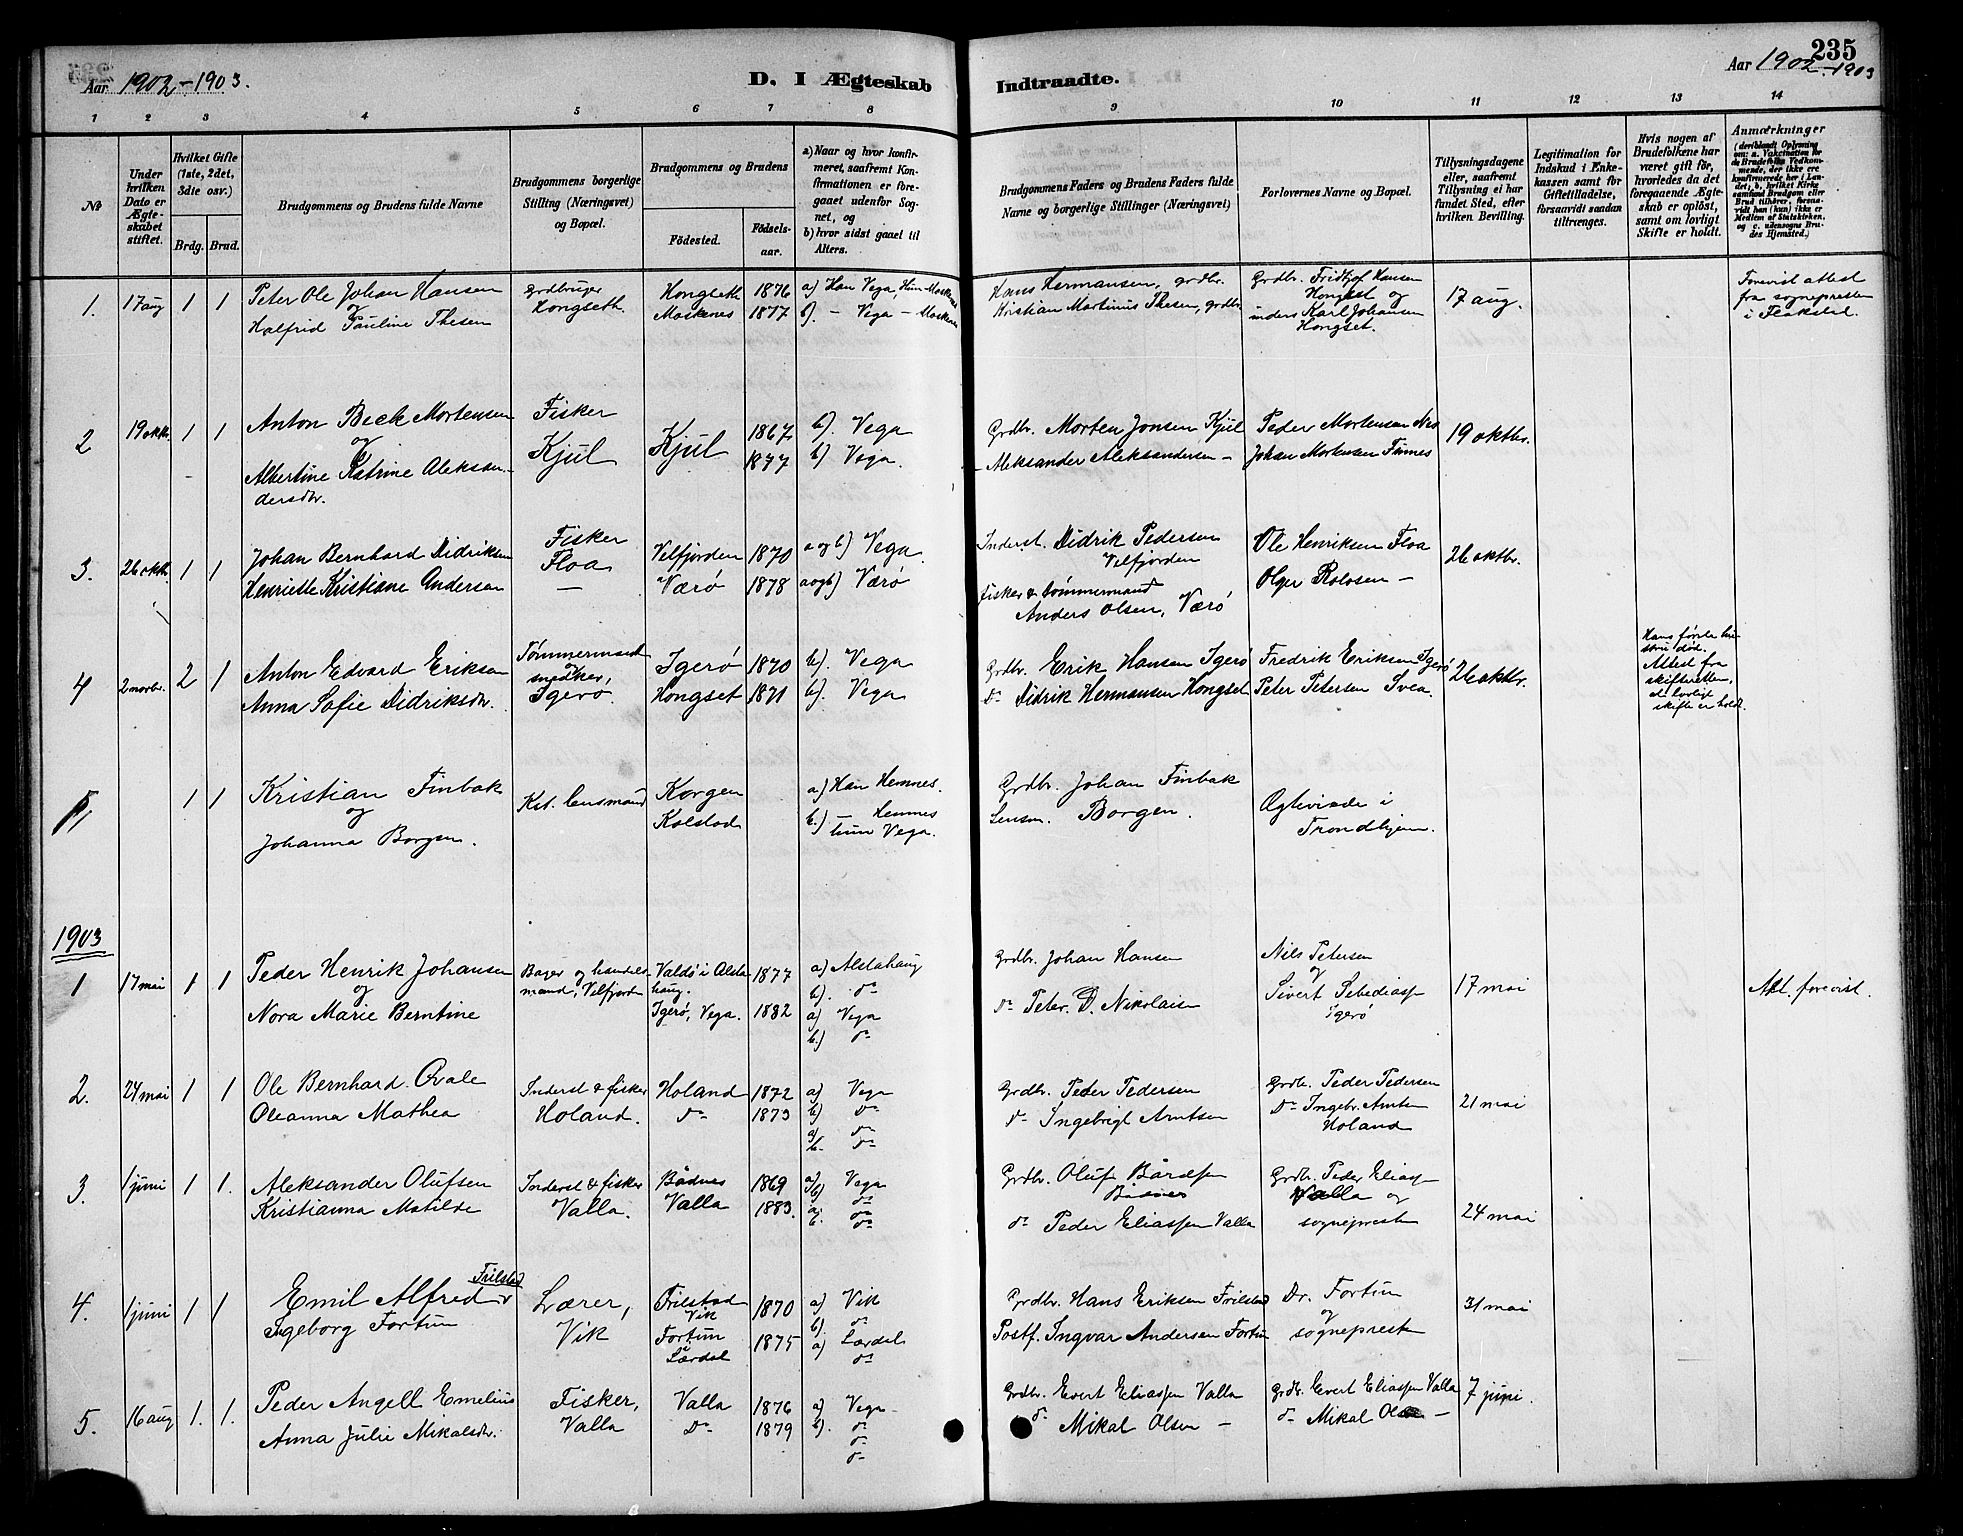 235
Aar 1902-1903.
D. I Ægteskab Indtraadte.
Aar 1902-1903
1 2 3 4 5 6 7 8 9 10 11 12 13 14
No
Under hvilken Dato er Ægteskabet stiftet.
Hvilket Gifte (1ste, 2det, 3die osv.)
Brdg. Brud.
Brudgommens og Brudens fulde Navne
Brudgommens borgerlige Stilling (Næringsvei) og Bopæl.
Brudgommens og Brudens
Fødested. Fødselsaar.
a) Naar og hvor konfirmeret, saafremt Konfirmationen er foregaaet udenfor Sognet, og
b) hvor sidst gaaet til Alters.
Brudgommens Faders og Brudens Faders fulde Navne og borgerlige Stillinger (Næringsvei)
Forlovernes Navne og Bopæl.
Tillysningsdagene eller, saafremt Tillysning ei har fundet Sted, efter hvilken Bevilling.
Legitimation for Indskud i Enkekassen samt for Giftetilladelse, forsaavidt saadan tiltrænges.
Hvis nogen af Brudefolkene har været gift før, hvorledes da det foregaaende Ægteskab er opløst, samt om lovligt Skifte er holdt.
Anmærkninger (deriblandt Oplysning om: a. Vakcination for de Brudefolks Vedkommende, der ikke ere konfirmerede her i Landet; b. hvilket Kirkesamfund Brudgom eller Brud tilhører, forsaavidt han (hun) ikke er Medlem af Statskirken, og c. udensogns Brudes Hjemsted.)
1. 17 aug 1 1 Peter Ole Johan Hansen og Halfrid Pauline Thesen
Grdbruger Hongseth
Hongseth 1876
Moskenes 1877
a) Han Vega, Hun Moskenes
b). - Vega - Moskenes
Hans Hermansen, grdbr.
Kristian Martinus Thesen, grdbr.
Grdbr. Fridtjof Hansen Hongset og inders Karl Johansen Hongset.
17 aug.
Forevist attest fra sognepresten i Flakstad.
2 19 oktb. 1 1 Anton Beck Mortensen og Albertine Katrine Aleksandersdtr.
Fisker Kjul
Kjul 1867
1877
b). Vega
b) Vega.
Grdbr. Morten Jonsen Kjul
- Aleksander Aleksandersen -
Peder Mortensen Nes
Johan Mortensen Finnes
19 oktbr.
3. 26 oktb. 1 1 Johan Bernhard Didriksen
Henriette Kristiane Andersen
Fisker Floa
-
Velfjorden 1870
Værø 1878
a og b) Vega.
a og b) Værø
Inderst. Didrik Pedersen Velfjorden
fisker & tømmermand Anders Olsen, Værø
Ole Henriksen Floa
Olger Rolosen -
26 oktbr.
4 2 novbr. 2 1 Anton Edvard Eriksen
Anna Sofie Didriksdtr.
Tømmermand Igerø.
Igerø 1870
Hongset 1871
b). Vega
b). Vega
Grdbr. Erik Hansen Igerø
Do Didrik Hermansen Hongset
Fredrik Eriksen Igerø
Peter Petersen Svea.
26 oktbr.
Hans første hustru død. Attest fra skifteretten, at lovligt skifte er holdt.
5 1 1 Kristian Finbak og Johanna Borgen.
Kst. lensmand
Korgen
Kolstad
a) Han Hemnes.
b.) - Hemnes
hun Vega.
Grdbr. Johan Finbak
Lensm. Borgen.
Ægteviede i Trondhjem.
1903
1 17 mai 1 1 Peder Henrik Johansen og Nora Marie Berntine
Bager og handelsmand, Velfjord
Valdø i Alstahaug. 1877
Igerø, Vega. 1882
a) Alstahaug
b). do
a) Vega
b.) do
Grdbr. Johan Hansen
do Peter D. Nikolaisen
Nils Petersen og Sivert Sebediass Igerø
17 mai
Att. forevist.
2. 24 mai 1 1 Ole Bernhard
Oleanna Mathea
Inderst & fisker Holand.
Holand 1872
do 1873
a) Vega
b) Do
a) do
b. do
Grdbr. Peder Pedersen
do Ingebrigt Arntsen
Grdbr. Peder Pedersen
Do Ingebr. Arntsen Holand
21 mai
3. 1 juni 1 1. Aleksander Olufsen
Kristianna Matilde
Inderst & fisker Valla.
Bådnes 1869
Valla 1883.
a) Vega
b) do
a. do
b. do
Grdbr. Oluf Bårdsen
do Peder Eliassen Valla
Grdbr. Peder Eliass Valla og sogneprest
24 mai
4. 1 juni 1 1 Emil Alfred Frilstad
Ingeborg Fortun
Lærer, Vik
Frilstad Vik 1870
Fortun i Lærdal 1875
a) Vik
b). do
a) Lærdal
do
Grdbr. Hans Eriksen Frilstad
Postf. Ingvar Andersen Fortun
Dr. Fortun og sogneprest
31 mai
5. 16 aug 1. 1. Peder Angell Emelius
Anna Julie Mikalsdtr.
Fisker, Valla
Valla 1876
Do 1879
a) Vega
b). do
do
do
Grdbr. Evert Eliassen Valla
do Mikal Olsen -
Grdbr. Evert Eliassen Valla
do Mikal Olsen -
7 juni.